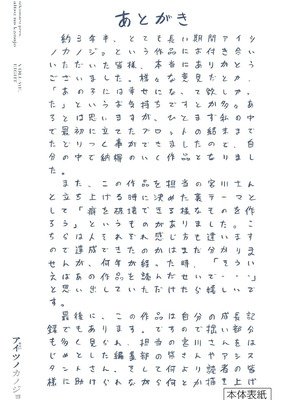 あとがき
約3年半、とても長い期間アイツ
ノカノジョという作品にお付き合い
いただいた皆様、本当にありがとう
ございました。様々な意見だとか、
「あの子には幸せになって欲しかっ
た」というお気持ちですとか多々ある
とは思いますが、ひとまず私の中
で最初に立てたプロットの結末まで
たどりつく事ができましたので、自
分の中で納得のいく作品となりまし
た。
また、この作品を担当の宮川さん
と立ち上げる時に決めた裏テーマと
して「癖を破壊できる様なものを作
ろう」というものがありました。こ
ちらは人それぞれ感じ方も違います
ので達成できたのかはまだ分かりま
せんが、何年か経った時、「そうい
えばあの作品を読んだせいで・・・」
と思い出していただけたら嬉しいで
す。
最後に、この作品は自分の成長記
録でもあります。ですので拙い部分
も多く見られ、担当の宮川さんをは
じめとした編集部の皆さんやアシス
タントさん、そして何より読者の皆
様に助けられながら何とか描き上げ
アイツノカノジョ
本体表紙